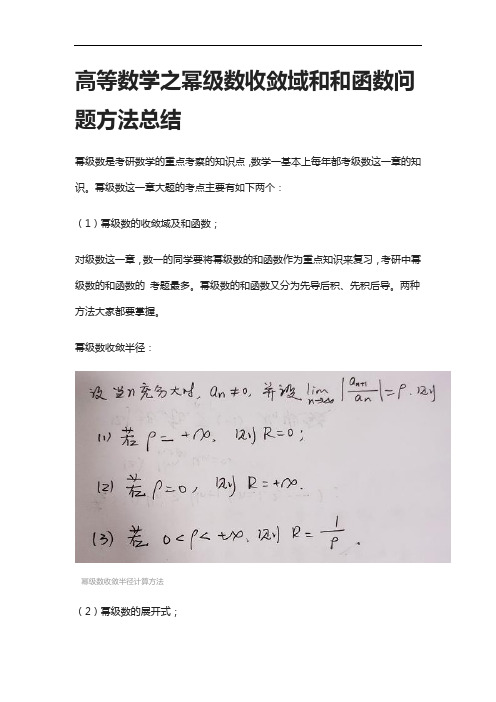 高等数学之幂级数收敛域和和函数问
题方法总结
幂级数是考研数学的重点考察的知识点，数学一基本上每年都考级数这一章的知
识。幂级数这一章大题的考点主要有如下两个：
（1）幂级数的收敛域及和函数；
对级数这一章，数一的同学要将幂级数的和函数作为重点知识来复习，考研中幂
级数的和函数的 考题最多。幂级数的和函数又分为先导后积、先积后导。两种
方法大家都要掌握。
幂级数收敛半径：
设当n充分大时, aₙ≠0, 并设 lim n→∞ |aₙ₊₁/aₙ|=ρ, 则
(1) 若 ρ=+∞, 则 R=0;
(2) 若 ρ=0, 则 R=+∞.
(3) 若 0<ρ<+∞, 则 R=1/ρ。
幂级数收敛半径计算方法
（2）幂级数的展开式；